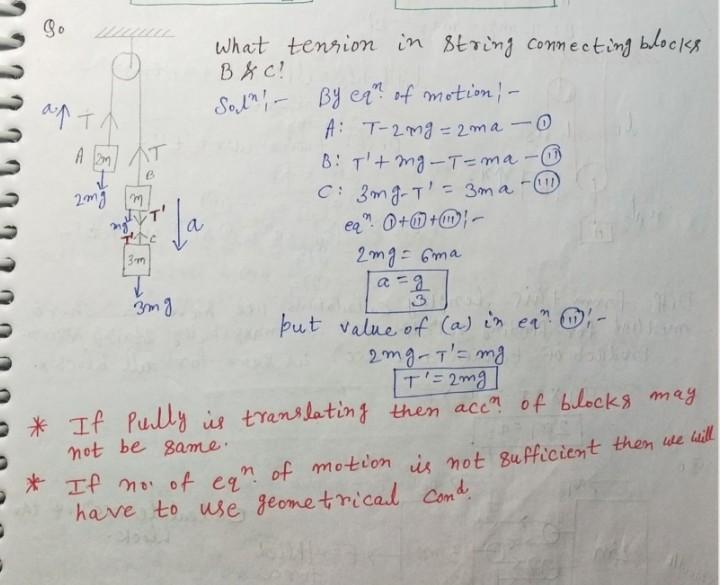 Q.
What tension in string connecting blocks
B & C?
Solⁿ:- By eqⁿ. of motion:-
a↑ T
A 2m T
2mg
B
m
mg T' a
T' C
3m
3mg
A: T-2mg = 2ma — (I)
B: T' + mg - T = ma — (II)
C: 3mg - T' = 3ma — (III)
eqⁿ. (I)+(II)+(III):-
2mg = 6ma
a = g/3
put value of (a) in eqⁿ (III):-
2mg - T' = mg
T' = 2mg
* If Pully is translating then accⁿ. of blocks may
not be same.
* If no. of eqⁿ. of motion is not sufficient then we will
have to use geometrical Cond.